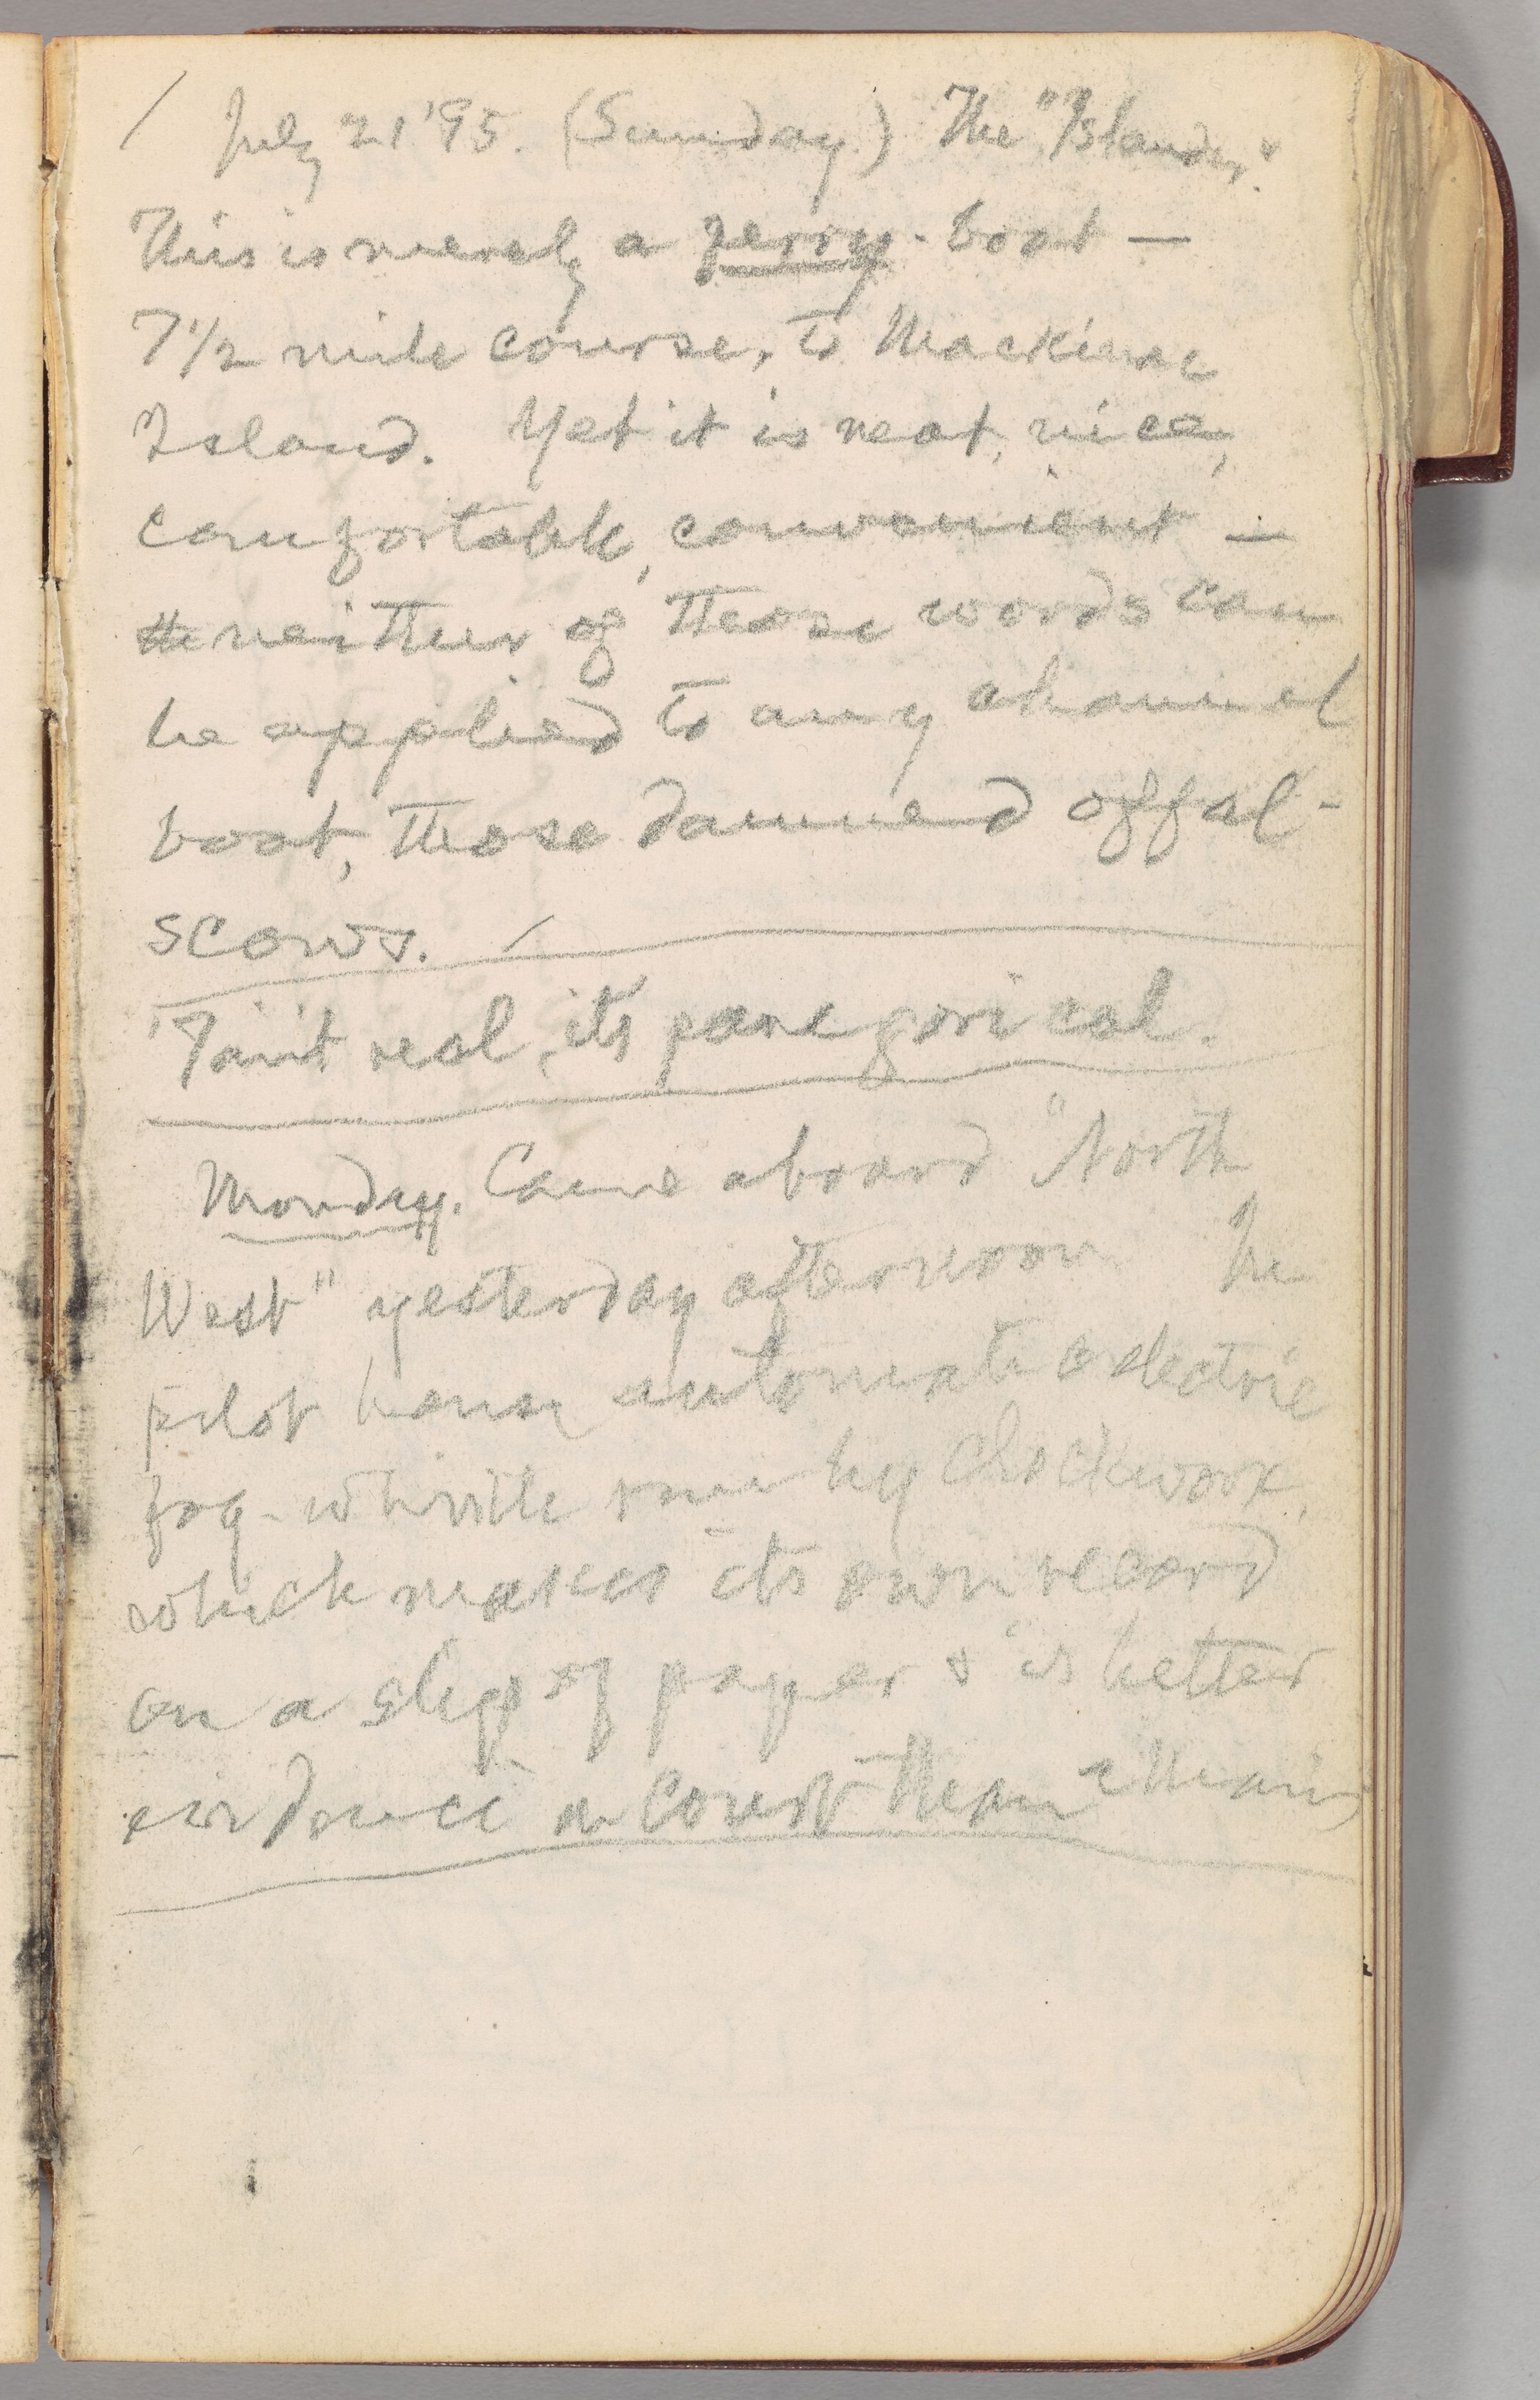 July 21 '95. (Sunday.) The "Islander."
This is merely a ferry-boat —
7 1/2 mile course, to Mackinac
Island. Yet it is neat, nice,
comfortable, convenient —
neither of those words can
be applied to any channel
boat, those damned offal-
scows.
'Tain't real, it's paregorical.
Monday. Came aboard "North
West" yesterday afternoon In
pilot house automatic electric
fog-whistle run by clockwork,
which makes its own record
on a slip of paper & is better
evidence in Court than a man's